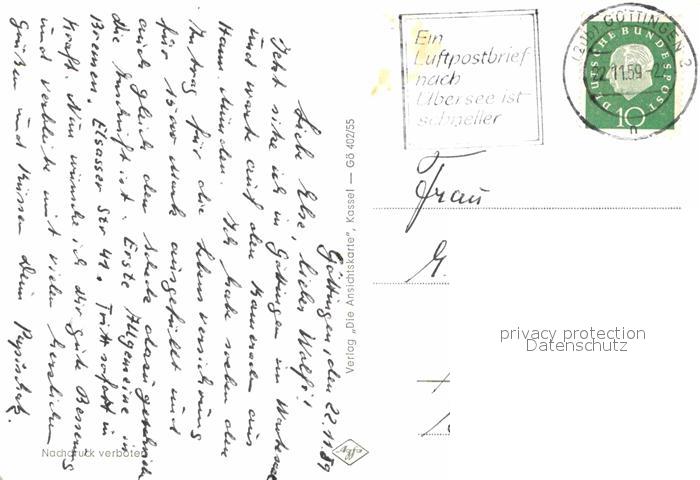 Göttingen, den 22.11.59
Liebe Else, lieber Wolfi!
Jetzt sitze ich in Göttingen im Wartesaal
und warte auf den Kameraden aus
Hann. Münden. Ich habe soeben den
Antrag für die Lebensversicherung
für 15 000 Mark ausgefüllt und
auch gleich den Scheck
die Anschrift ist: Erste Allgemeine in
Bremen, Elsasser Str 41. Tritt sofort in
Kraft. Nun wünsche ich Dir gute Besserung
und verbleibe mit vielen herzlichen
Grüßen und Küssen Dein
Nachdruck verboten
Verlag „Die Ansichtskarte", Kassel — Gö 402/55
Ein
Luftpostbrief
nach
Übersee ist
schneller
(20b) GÖTTINGEN 2
22.11.59
n
DEUTSCHE BUNDESPOST
10
Frau
privacy protection
Datenschutz